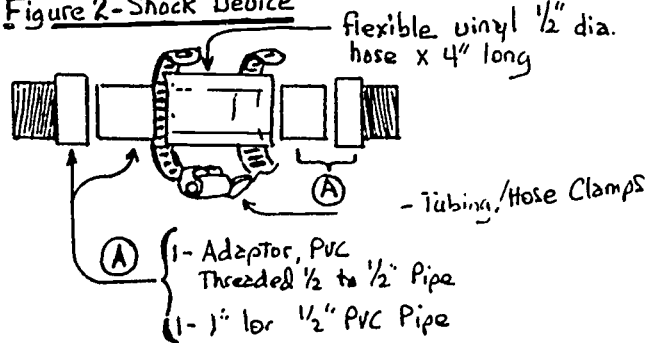 Figure 2 - Shock Device
flexible vinyl 1/2" dia.
hose x 4" long
A
- Tubing/Hose Clamps
A
1 - Adaptor, PVC
Threaded 1/2 to 1/2" Pipe
1 - 1" lor 1/2" PVC Pipe